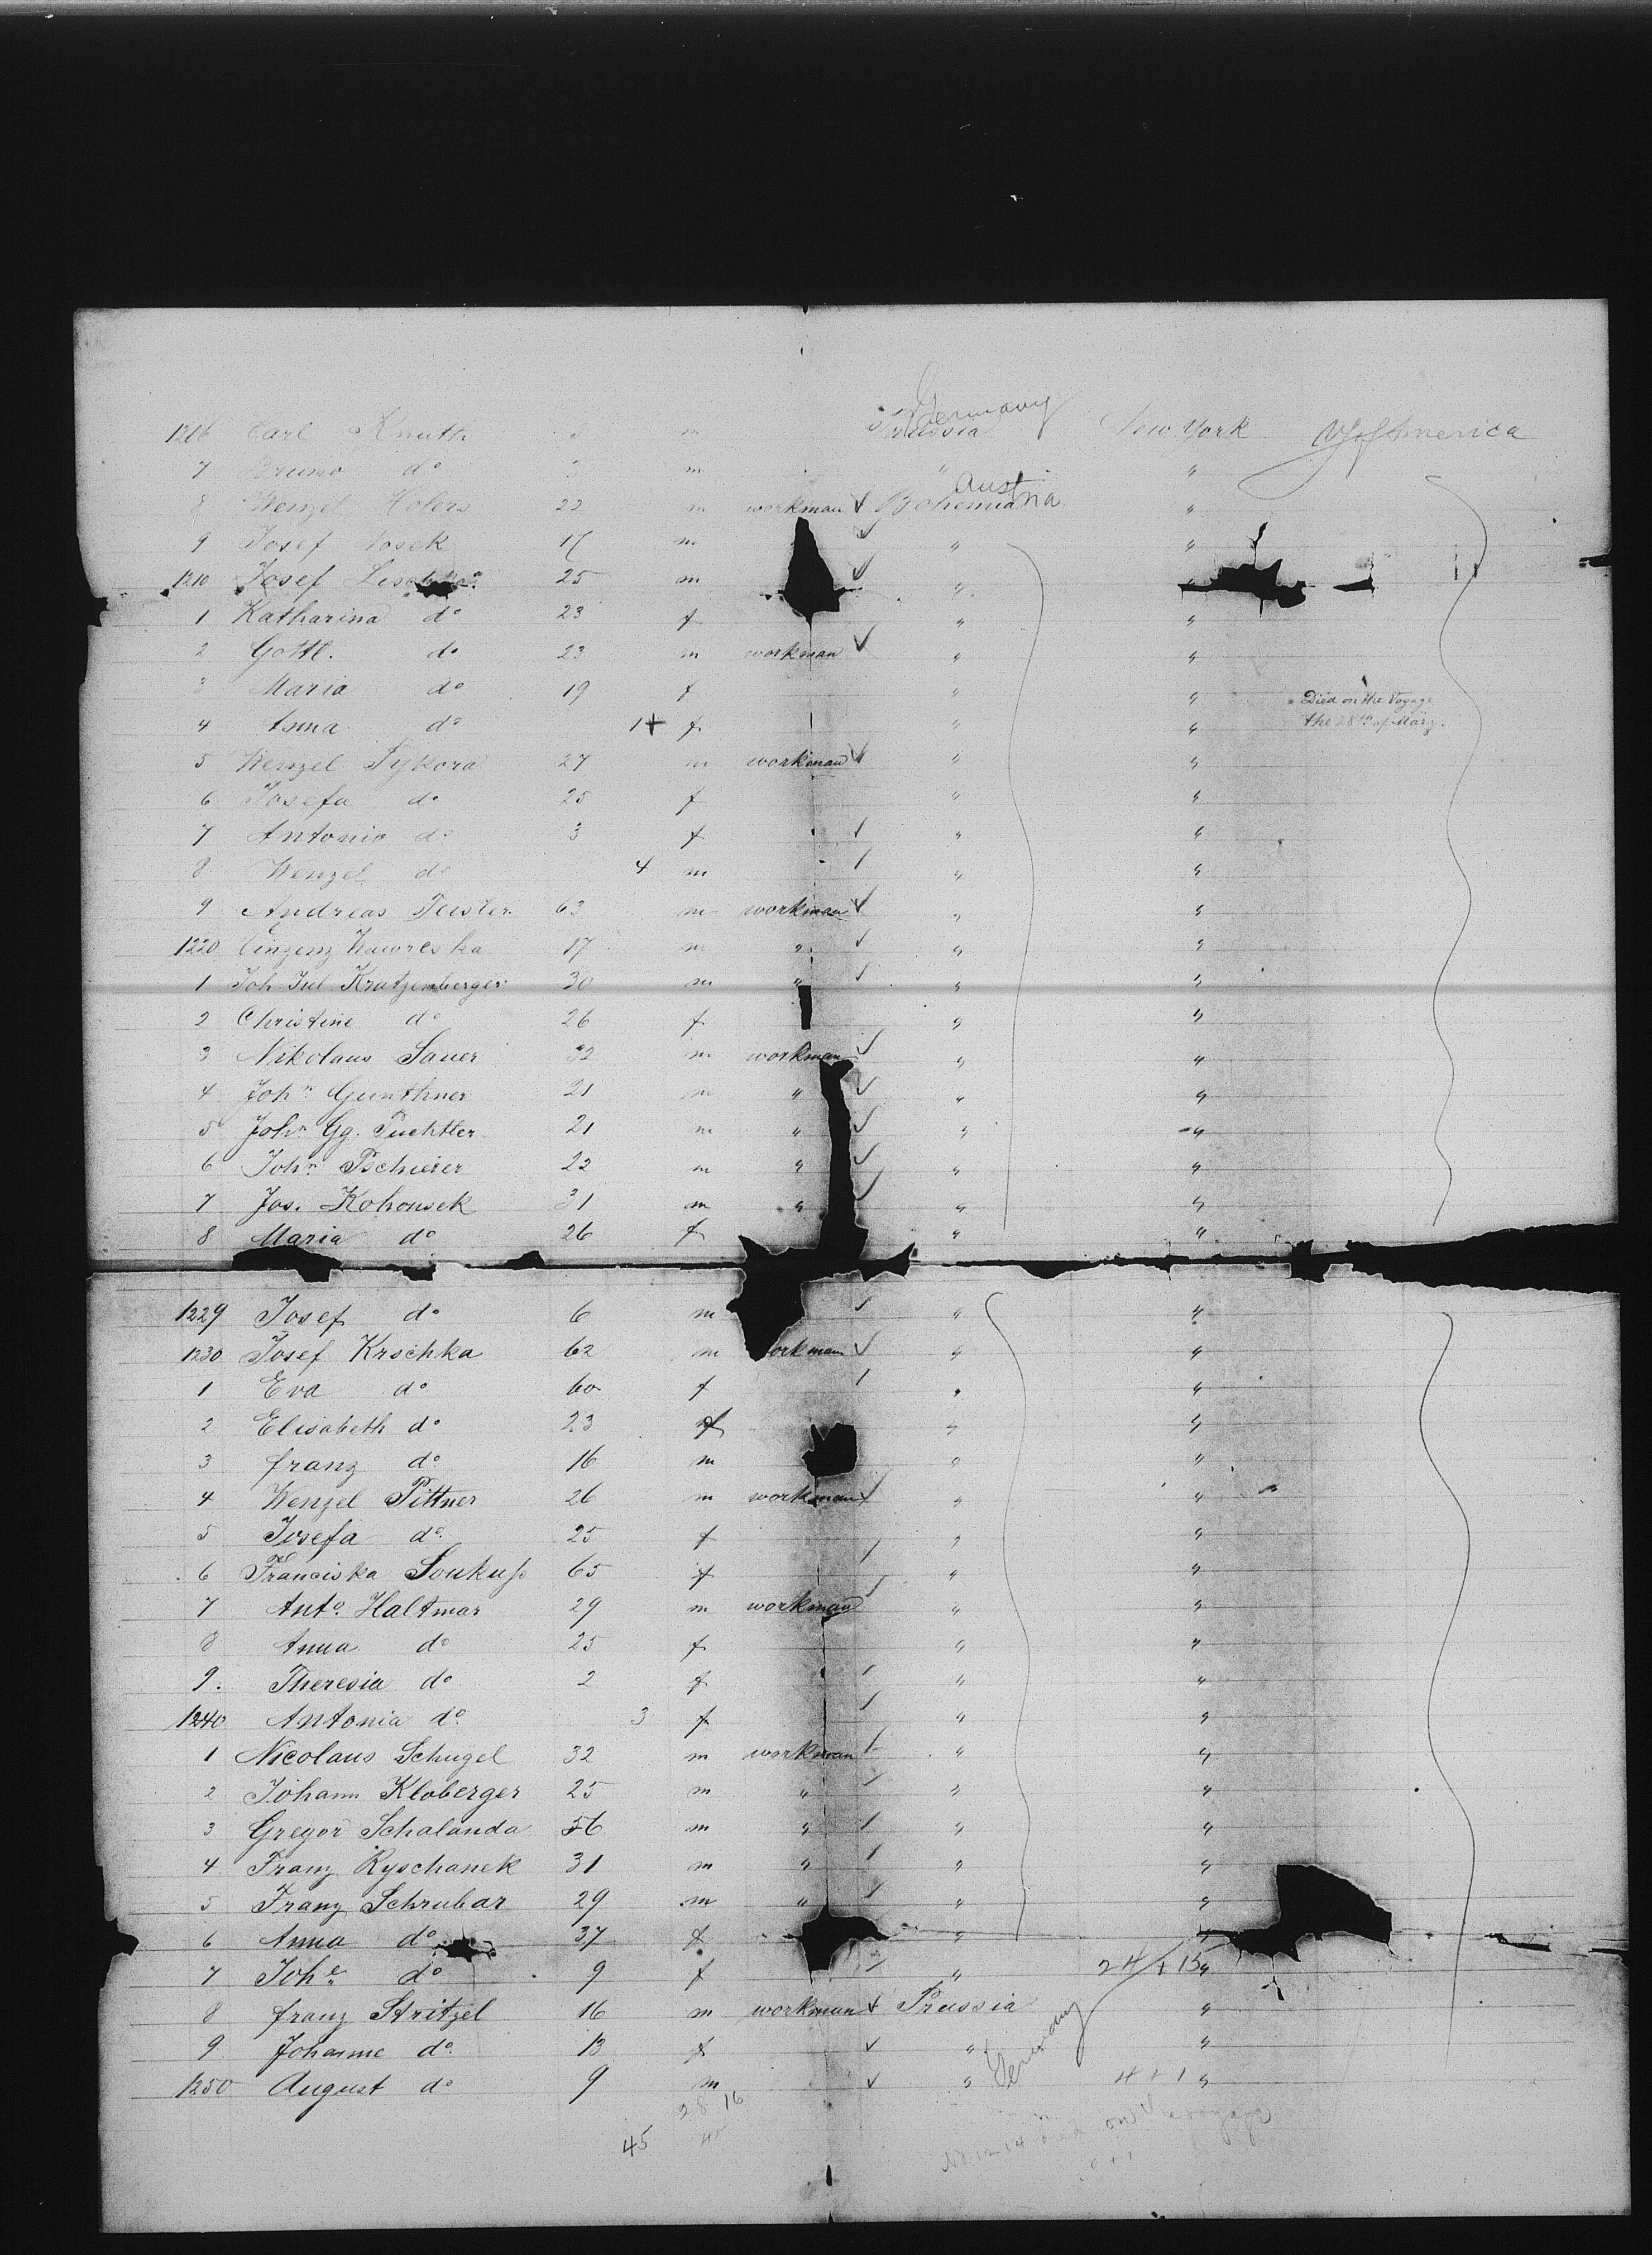 Germany
1206 Carl Knuth m Prussia New York U S of America
7 Bruno do m " "
Aust
8 Wenzel Holers 22 m workman Bohemia ria "
9 Josef Nosek 17 m " "
1210 Josef 25 m "
1 Katharina do 23 f " "
2 Gottl. do 23 m workman " "
3 Maria do 19 f " " Died on the Voyage
4 Anna do 1+ f " " the 28th of März.
5 Wenzel Sykora 27 m workman " "
6 Josefa do 25 f " "
7 Antonio do 3 f " "
8 Wenzel do 4 m " "
9 Andreas 63 m workman " "
1220 Vinzenz Wawreska 17 m " " "
1 Joh. Jul. Kratzenberger 30 m " " "
2 Christine do 26 f " "
3 Nikolaus Sauer 32 m workman " "
4 John Gunthner 21 m " " "
5 John Gg. Puchtler 21 m " " "
6 John Pschierer 22 m " " "
7 Jos. Kohousek 31 m " " "
8 Maria do 26 f " "
1229 Josef do 6 m " "
1230 Josef Krschka 62 m workman " "
1 Eva do 60 f " "
2 Elisabeth do 23 f " "
3 franz do 16 m " "
4 Wenzel Pittner 26 m workman " "
5 Josefa do 25 f " "
6 Franciska Soukup 65 f " "
7 Anto. Haltmar 29 m workman " "
8 Anna do 25 f " "
9. Theresia do 2 f " "
1240 Antonia do 3 f " "
1 Nicolaus Schugel 32 m workman " "
2 Johann Kloberger 25 m " " "
3 Gregor Schalanda 56 m " " "
4 Franz Ryschanek 31 m " " "
5 Franz Schrubar 29 m " " "
6 Anna do 37 f " "
7 Johe do 9 f " 24 + 15 "
8 franz Stritzel 16 m workman Prussia "
9 Johanne do 13 f " Germany "
1250 August do 9 m " 4 + 1 "
28 16
45
No 1214 died on voyage